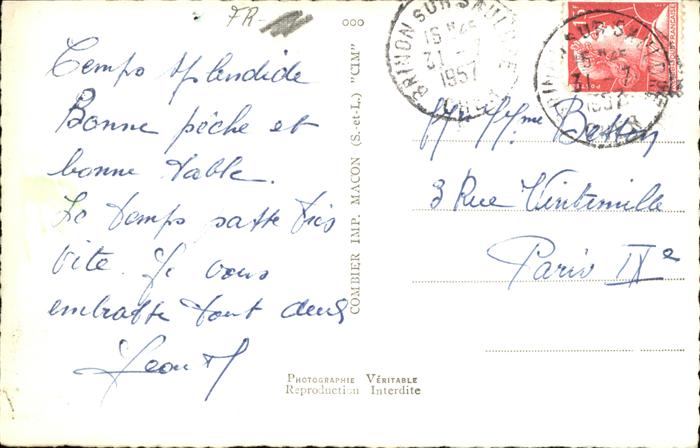 FR-
ooo
Temps splendide
Bonne pêche et
bonne table.
Le temps passe très
vite. Je vous
embrasse tout deux
COMBIER IMP. MACON (S.-et-L.) "CIM"
BRINON SUR SAULDRE
21 - 7
1957
CHER
BRINON SUR SAULDRE
1957
CHER
M. Mme Betton
3 Rue Vintimille
Paris IXe
PHOTOGRAPHIE VÉRITABLE
Reproduction Interdite